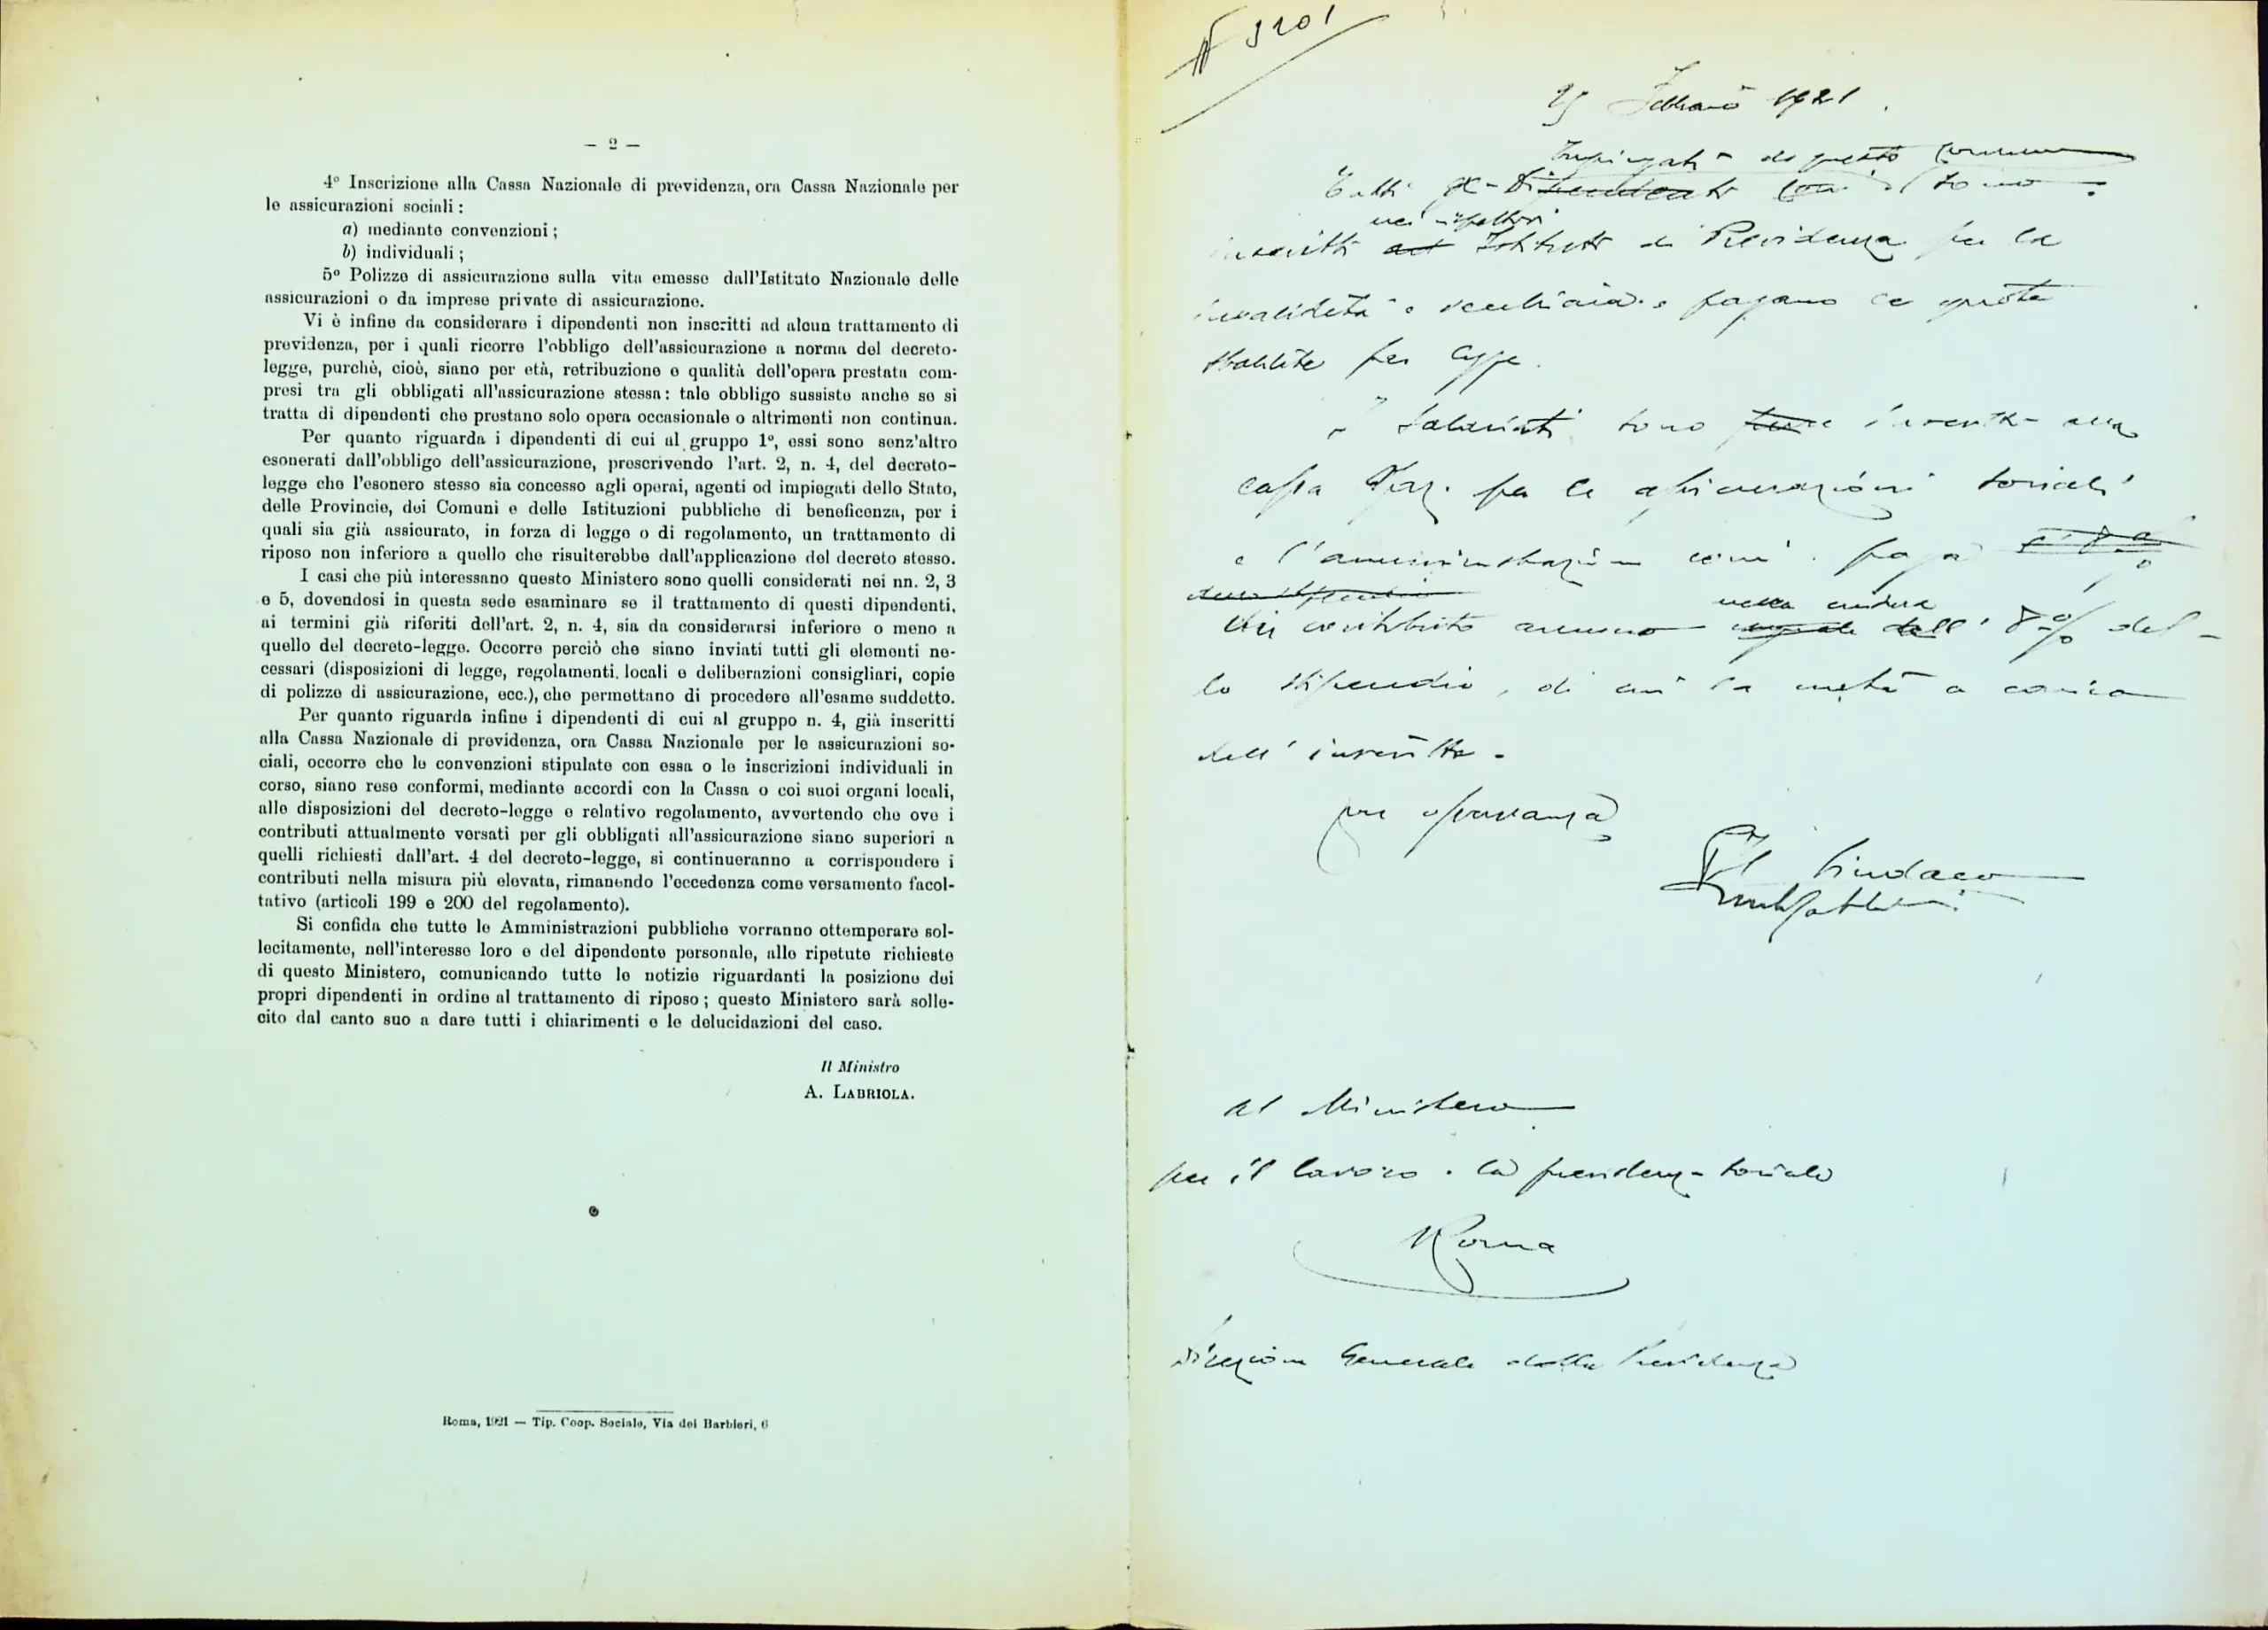 — 2 —
4° Inscrizione alla Cassa Nazionale di previdenza, ora Cassa Nazionale per
le assicurazioni sociali :
a) mediante convenzioni ;
b) individuali ;
5° Polizze di assicurazione sulla vita emesse dall'Istituto Nazionale delle
assicurazioni o da imprese private di assicurazione.
Vi è infine da considerare i dipendenti non inscritti ad alcun trattamento di
previdenza, per i quali ricorre l'obbligo dell'assicurazione a norma del decreto-
legge, purchè, cioè, siano per età, retribuzione e qualità dell'opera prestata com-
presi tra gli obbligati all'assicurazione stessa : tale obbligo sussiste anche se si
tratta di dipendenti che prestano solo opera occasionale o altrimenti non continua.
Per quanto riguarda i dipendenti di cui al gruppo 1°, essi sono senz'altro
esonerati dall'obbligo dell'assicurazione, prescrivendo l'art. 2, n. 4, del decreto-
legge che l'esonero stesso sia concesso agli operai, agenti od impiegati dello Stato,
delle Provincie, dei Comuni e delle Istituzioni pubbliche di beneficenza, per i
quali sia già assicurato, in forza di legge o di regolamento, un trattamento di
riposo non inferiore a quello che risulterebbe dall'applicazione del decreto stesso.
I casi che più interessano questo Ministero sono quelli considerati nei nn. 2, 3
e 5, dovendosi in questa sede esaminare se il trattamento di questi dipendenti,
ai termini già riferiti dell'art. 2, n. 4, sia da considerarsi inferiore o meno a
quello del decreto-legge. Occorre perciò che siano inviati tutti gli elementi ne-
cessari (disposizioni di legge, regolamenti locali e deliberazioni consigliari, copie
di polizze di assicurazione, ecc.), che permettano di procedere all'esame suddetto.
Per quanto riguarda infine i dipendenti di cui al gruppo n. 4, già inscritti
alla Cassa Nazionale di previdenza, ora Cassa Nazionale per le assicurazioni so-
ciali, occorre che le convenzioni stipulate con essa o le inscrizioni individuali in
corso, siano rese conformi, mediante accordi con la Cassa o coi suoi organi locali,
alle disposizioni del decreto-legge e relativo regolamento, avvertendo che ove i
contributi attualmente versati per gli obbligati all'assicurazione siano superiori a
quelli richiesti dall'art. 4 del decreto-legge, si continueranno a corrispondere i
contributi nella misura più elevata, rimanendo l'eccedenza come versamento facol-
tativo (articoli 199 e 200 del regolamento).
Si confida che tutte le Amministrazioni pubbliche vorranno ottemperare sol-
lecitamente, nell'interesse loro e del dipendente personale, alle ripetute richieste
di questo Ministero, comunicando tutte le notizie riguardanti la posizione dei
propri dipendenti in ordine al trattamento di riposo ; questo Ministero sarà solle-
cito dal canto suo a dare tutti i chiarimenti e le delucidazioni del caso.
Il Ministro
A. LABRIOLA.
Roma, 1921 — Tip. Coop. Sociale, Via dei Barbieri, 6
N 3201
Febbraio 1921.
Impiegati di questo Comune
Tutti gl'
nei rispettivi
inscritti Istituti di Previdenza per la
invalidità e vecchiaia e pagano le quote
stabilite per legge.
I Salariati sono inscritti alla
Cassa Naz. per le assicurazioni sociali
e l'amministrazione com. paga
nella misura
un contributo annuo dell' 8% del-
lo stipendio, di cui la metà a carico
dell'inscritto.
Con osservanza
Il Sindaco
Al Ministero
per il lavoro e la previdenza sociale
Roma
Direzione Generale della Previdenza